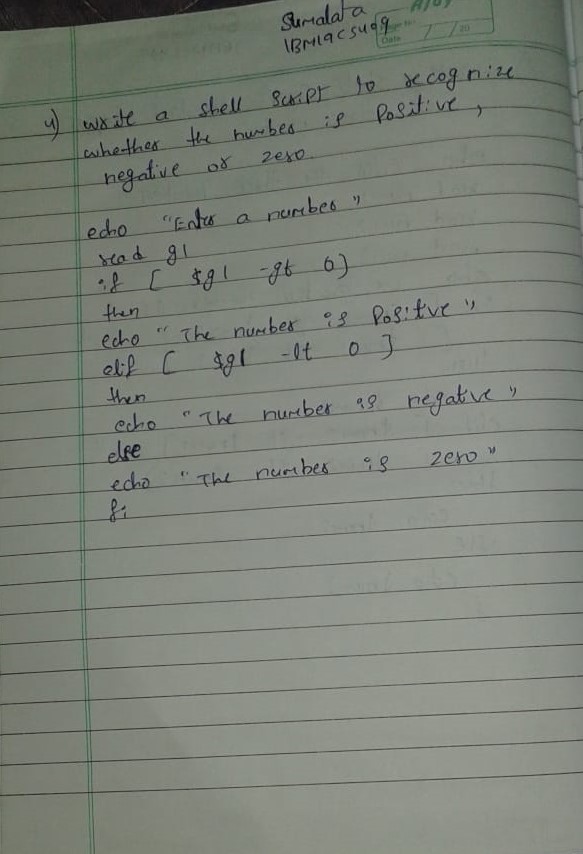 Sumalata
1BM19CS409
Date / / 20
4) write a shell script to recognize
whether the number is Positive,
negative or zero.
echo "Enter a number"
read g1
if [ $g1 -gt 0]
then
echo "The number is Positve"
elif [ $g1 -lt 0 ]
then
echo "The number is negatve"
else
echo "The number is zero"
fi